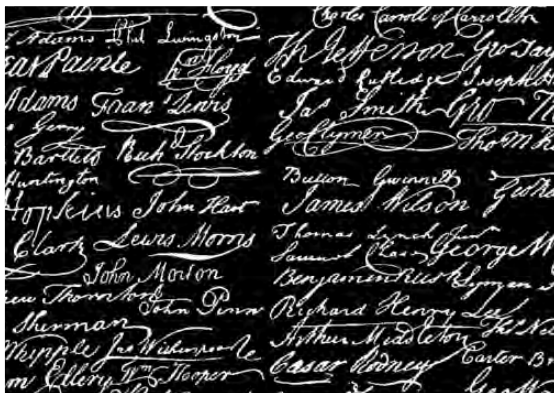 Adams Phil Livingston
Paine
Wm Floyd
Adams Fran Lewis
Gerry
Bartlett Rich Stockton
Huntington
Hopkins John Hart
Clark Lewis Morris
John Morton
Thornton
John Penn
Sherman
Whipple Jno Witherspoon
Ellery Wm Hooper
Charles Carroll of Carrollton
Th Jefferson Geo
Edward Rutledge Joseph
Jas Smith Geo
Geo Clymer Tho M
Button Gwinnett
James Wilson Geo
Thomas Lynch Junr
Samuel Chase George
Benjamin Rush Lyman
Richard Henry Lee
Arthur Middleton
Caesar Rodney Carter B
Geo